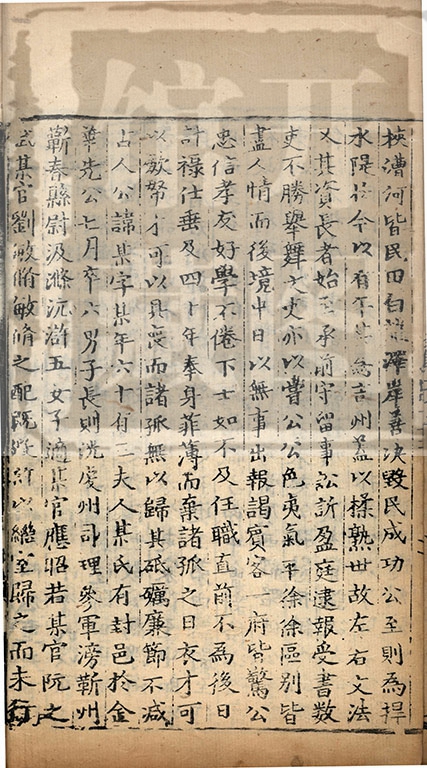 挾漕河皆民田白龍潭岸善決毀民成功公至則為捍
水隄於今以有年其為言州蓋以樣熟世故左右文法
又其資長者始至承前守留事訟訴盈庭逮報受書數
吏不勝舉舞文吏亦以嘗公公色夷氣平徐徐區別皆
盡人情而後境中日以無事出報謁賓客一府皆驚公
忠信孝友好學不倦下士如不及任職直前不為後日
計祿仕垂及四十年奉身菲薄而棄諸孤之日衣才可
以斂帑才可以具喪而諸孤無以歸其砥礪廉節不減
古人公諱某字某年六十有三夫人某氏有封邑於金
華先公七月卒六男子長則洗處州司理參軍滂蘄州
蘄春縣尉汲滌沆滸五女子適某官應昭若某官阮之
武某官劉敏脩敏脩之配既沒許以繼室歸之而未行